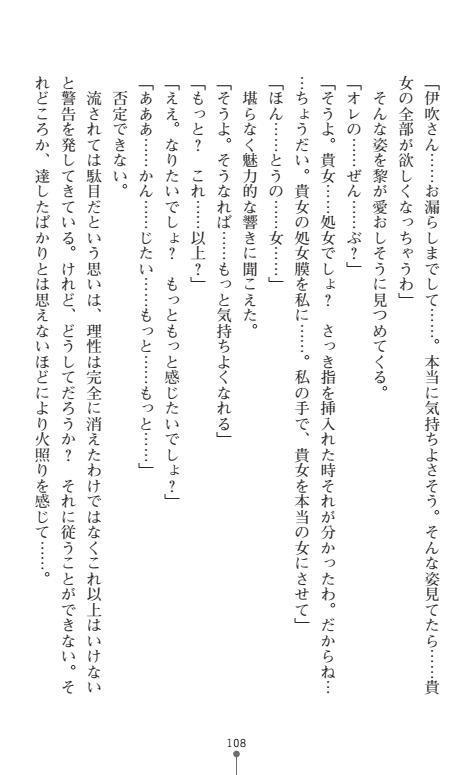 「伊吹さん……お漏らしまでして……。本当に気持ちよさそう。そんな姿見てたら……貴
女の全部が欲しくなっちゃうわ」
そんな姿を黎が愛おしそうに見つめてくる。
「オレの……ぜん……ぶ？」
「そうよ。貴女……処女でしょ？　さっき指を挿入れた時それが分かったわ。だからね…
…ちょうだい。貴女の処女膜を私に……。私の手で、貴女を本当の女にさせて」
「ほん……とうの……女……」
堪らなく魅力的な響きに聞こえた。
「そうよ。そうなれば……もっと気持ちよくなれる」
「もっと？　これ……以上？」
「ええ。なりたいでしょ？　もっともっと感じたいでしょ？」
「あああ……かん……じたい……もっと……もっと……」
否定できない。
流されては駄目だという思いは、理性は完全に消えたわけではなくこれ以上はいけない
と警告を発してきている。けれど、どうしてだろうか？　それに従うことができない。そ
れどころか、達したばかりとは思えないほどにより火照りを感じて……。
108